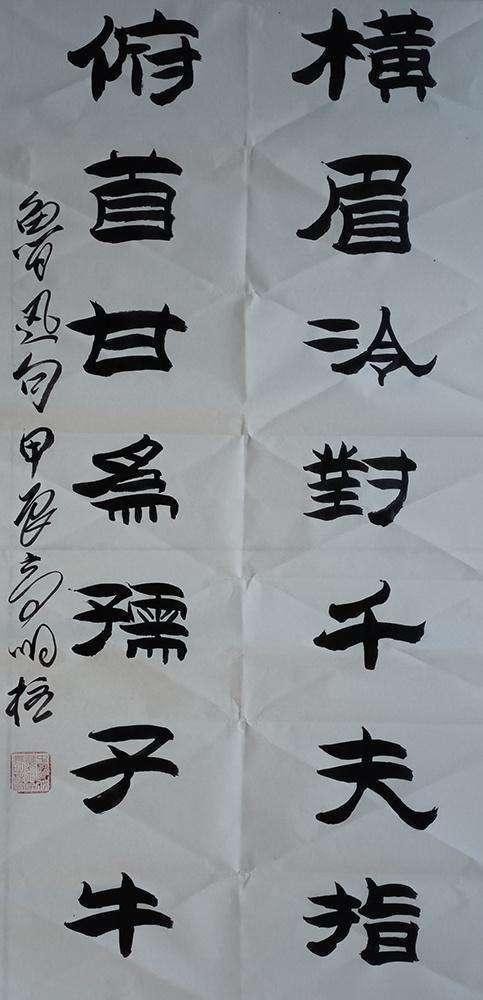 橫眉冷對千夫指
俯首甘為孺子牛
魯迅句甲辰高明柱